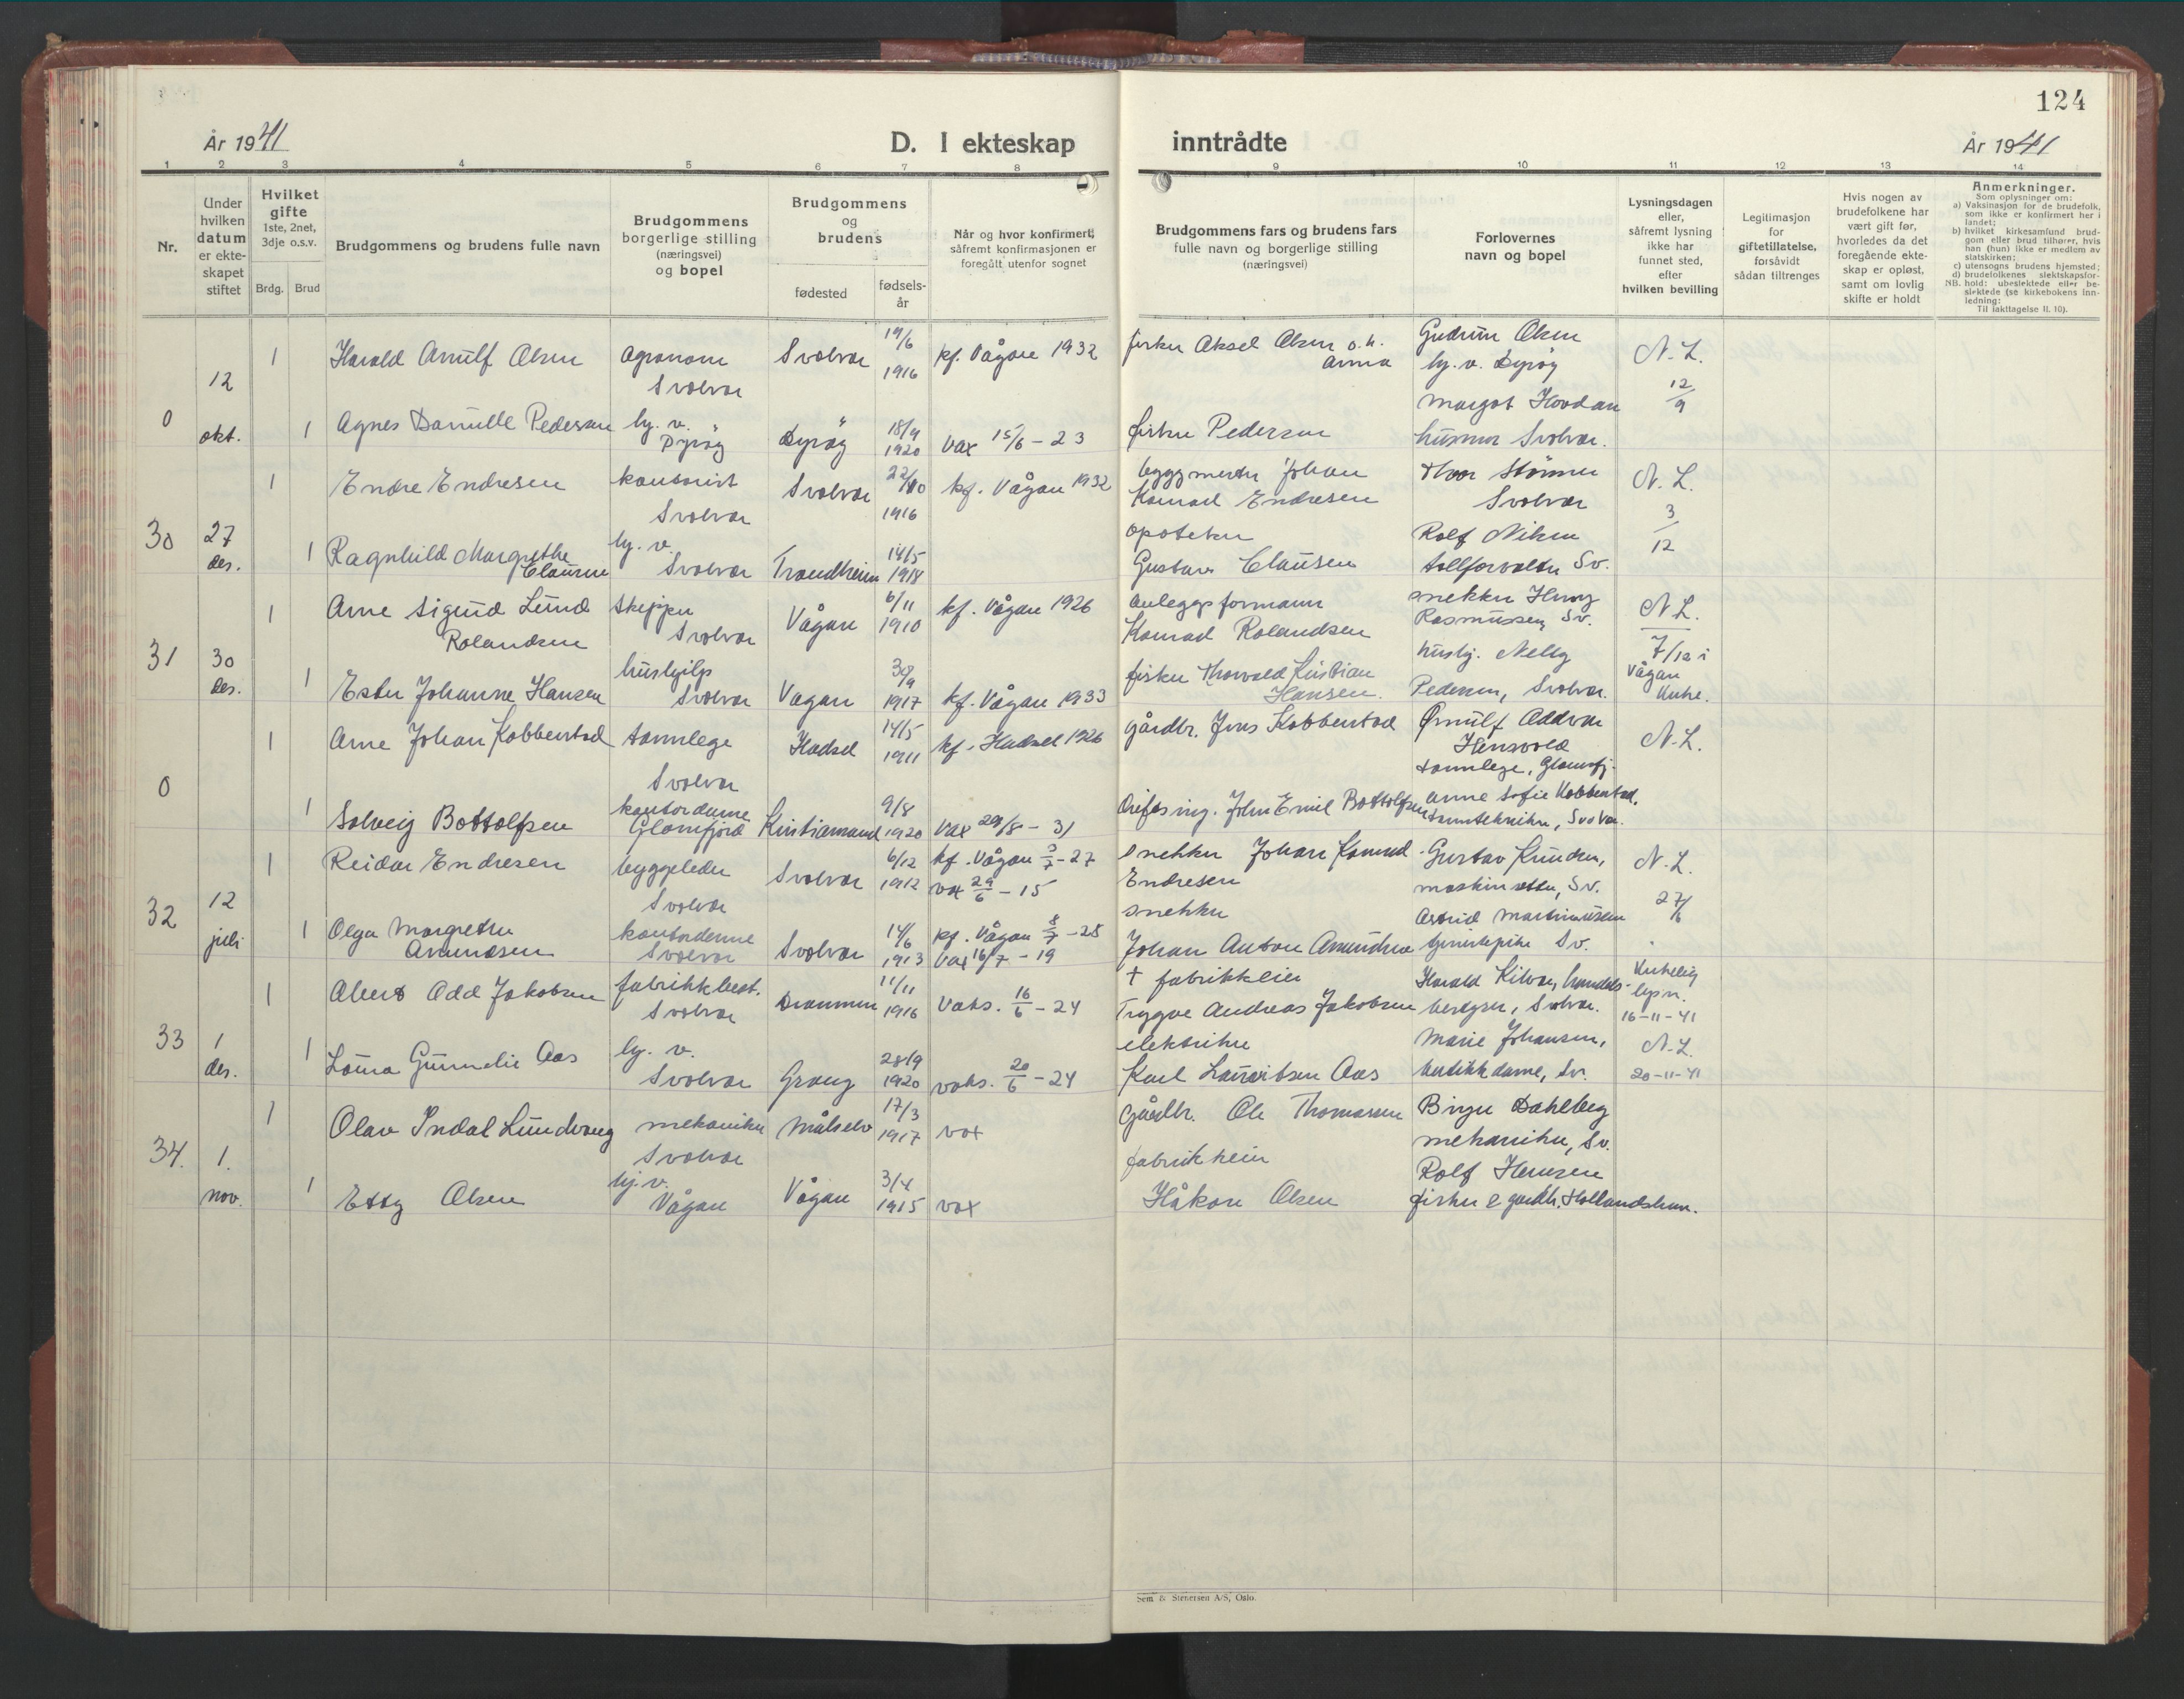 124
År 1941
D. I ekteskap inntrådte
År 1941
1 2 3 4 5 6 7 8 9 10 11 12 13 14
Nr.
Under hvilken datum er ekteskapet stiftet
Hvilket gifte 1ste, 2net, 3dje o.s.v.
Brdg. Brud
Brudgommens og brudens fulle navn
Brudgommens borgerlige stilling (næringsvei) og bopel
Brudgommens og brudens
fødested
fødselsår
Når og hvor konfirmert, såfremt konfirmasjonen er foregått utenfor sognet
Brudgommens fars og brudens fars fulle navn og borgerlige stilling (næringsvei)
Forlovernes navn og bopel
Lysningsdagen eller, såfremt lysning ikke har funnet sted, efter hvilken bevilling
Legitimasjon for giftetillatelse, forsåvidt sådan tiltrenges
Hvis nogen av brudefolkene har vært gift før, hvorledes da det foregående ekteskap er opløst, samt om lovlig skifte er holdt
Anmerkninger.
Som oplysninger om:
a) Vaksinasjon for de brudefolk, som ikke er konfirmert her i landet;
b) hvilket kirkesamfund brudgom eller brud tilhører, hvis han (hun) ikke er medlem av statskirken;
c) utensogns brudens hjemsted;
d) brudefolkenes slektskapsforhold: ubeslektede eller beslektede (se kirkebokens innledning:
NB.
Til iakttagelse II. 10).
0 12 okt.
1 Harald Arnulf Olsen agronom Svolvær Svolvær 19/6 1916 kf. Vågan 1932 fisker Aksel Olsen o.h. Anna
Gudrun Olsen hj. v. Dyrøy N.L. 12/9
1 Agnes Danielle Pedersen hj. v. Dyröy Dyröy 18/9 1920 vax 15/6 - 23 fisker Pedersen
Margot Hovdan husmor Svolvær.
30 27 des.
1 Endre Endresen kontorist Svolvær Svolvær 22/10 1916 kf. Vågan 1932 byggmester Johan Konrad Endresen
Thor Störmer Svolvær N.L. 3/12
1 Ragnhild Margrethe Clausen hj. v. Svolvær Trondheim 14/5 1918 apoteker Gustav Clausen
Rolf Nilsen tollforvalter Sv.
31 30 des.
1 Arne Sigurd Lund Rolandsen Skipper Svolvær Vågan 6/11 1910 kf. Vågan 1926 anleggsformann Konrad Rolandsen
snekker Rasmussen, Sv. N.L. 7/12 i Vågan kirke.
1 Ester Johanne Hansen hushjelp Svolvær Vågan 1917 kf. Vågan 1933 fisker Thorvald Kristian Hansen.
hushj. Nelly Pedersen, Svolvær.
0
1 Arne Johan Kobbentad tannlege Svolvær Hadsel 14/5 1911 kf. Hadsel 1926 gårdbr. Jens Kobbentad
Ørnulf Addvar tannlege, Glomfj. N.L.
1 Solveig Bottolfsen kontordame Glomfjord Kristiansund 9/8 1920 vax 29/8 - 31 ing. John Emil Bottolfsen
Anne Sofie Kobbentad, tanntekniker, Svolvær.
32 12 juli
1 Reidar Endresen byggeleder Svolvær Svolvær 6/12 1912 kf. Vågan 3/7 - 27 vax 29/6 - 15 snekker Johan Konrad Endresen
Gustav Knudsen, maskinsetter, Sv. N.L. 27/6
1 Olga Margrethe Amundsen kontordame Svolvær Svolvær 14/6 1913 kf. Vågan 8/7 - 28 vax 16/7 - 19 snekker Johan Anton Amundsen
Astrid Martinussen tjenestepike Sv.
33 1 des.
1 Albert Odd Jakobsen fabrikkbest. Svolvær Drammen 11/11 1916 vaks. 16/6 - 24 † fabrikkeier Trygve Andreas Jakobsen
Harald Kilvær, handelsbestyrer, Svolvær. Kirkelig lysn. 16-11-41
1 Laura Gunnelie Aas hj. v. Svolvær Grong 28/9 1920 vaks. 20/6 - 24 elektriker Karl Lauritsen Aas
Marie Johansen, butikkdame, Sv. N.L. 20-11-41
34. 1. nov.
1 Olav Indal Lundvang mekaniker Svolvær Målselv 17/3 1917 vax gårdbr. Ole Thomassen
Birger Dahlberg mekaniker, Sv.
1 Etty Olsen hj. v. Vågan Vågan 3/4 1915 vax fabrikkeier Håkon Olsen
Rolf Hansen fisker & gårdbr.
Sem & Stenersen A/S, Oslo.